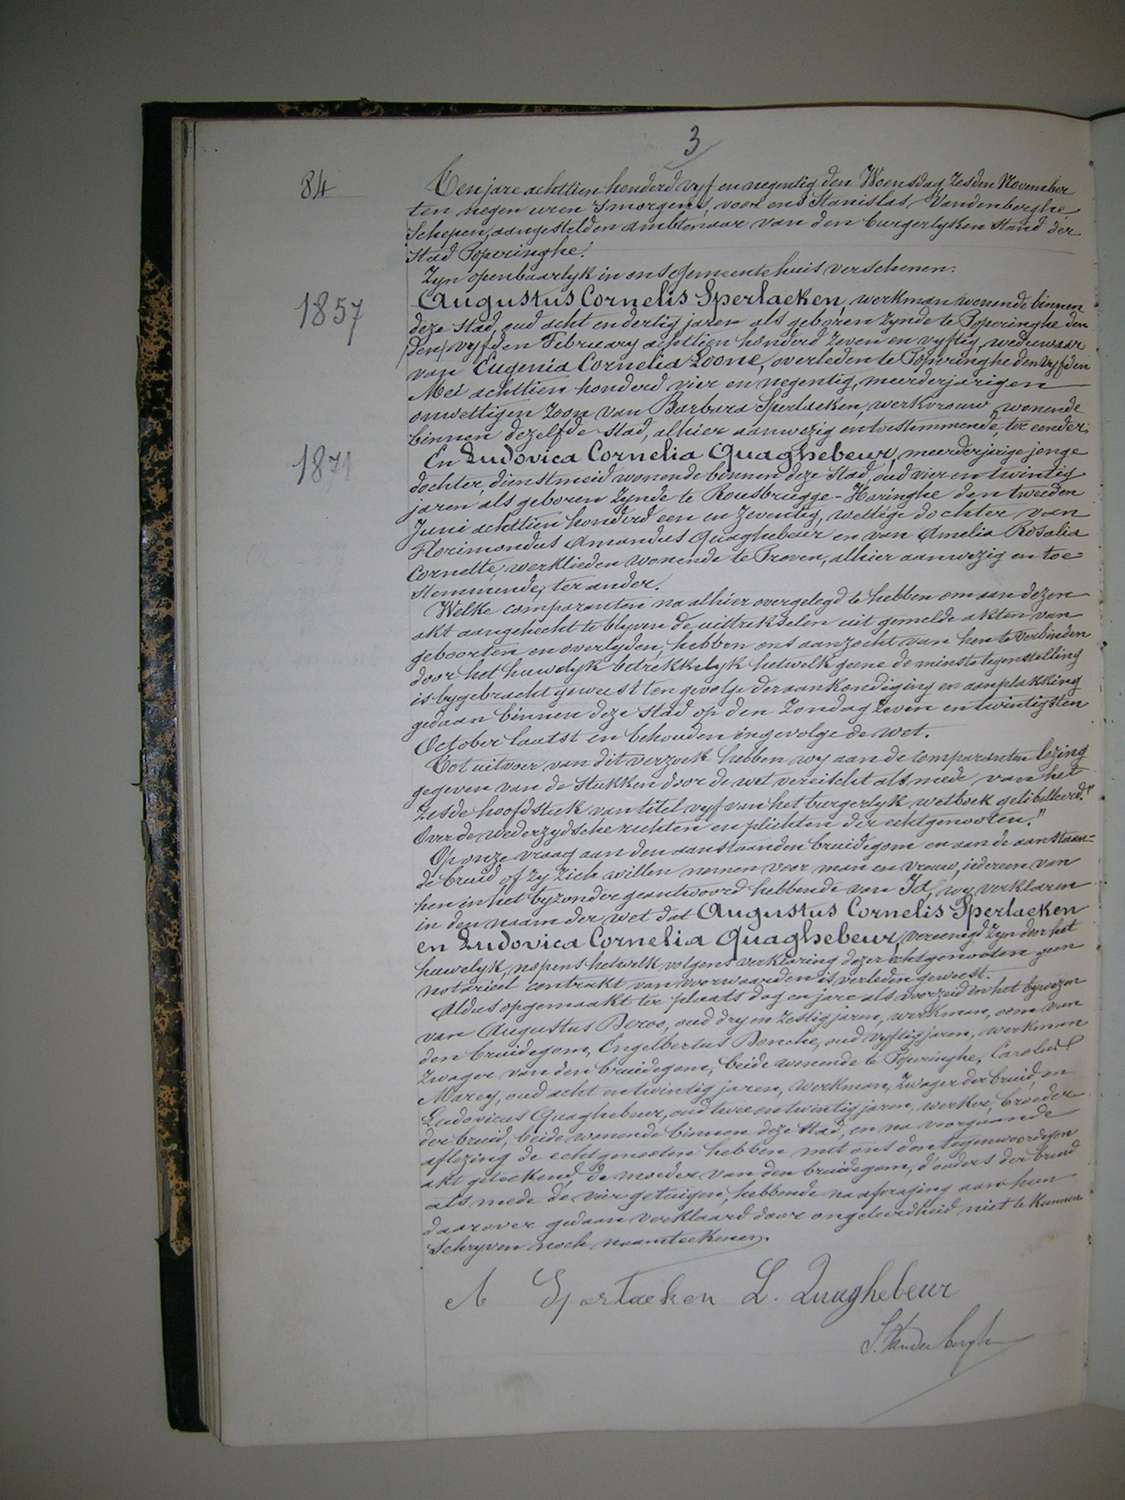 3
84
Ten jare achttien honderd vyf en negentig den Woensdag zesden November
ten negen uren 's morgens, voor ons Stanislas Vandenberghe,
Schepen, aangestelden ambtenaar van den burgerlyken stand der
stad Poperinghe.
Zyn openbaarlyk in ons gemeentehuis verschenen:
1857
Augustus Cornelis Sperlaeken, werkman wonende binnen
deze stad, oud acht en dertig jaren als geboren zynde te Poperinghe den
(den) vyfden February achttien honderd zeven en vyftig, weduwaar
van Eugenia Cornelia Loone, overleden te Poperinghe den vyfden
Mei achttien honderd vier en negentig, meerderjarigen
onwettigen zoon van Barbara Sperlaeken, werkvrouw, wonende
binnen dezelfde stad, alhier aanwezig en toestemmende, ter eender.
1871
En Ludovica Cornelia Quaghebeur, meerderjarige jonge
dochter, dienstmeid wonende binnen deze stad, oud vier en twintig
jaren als geboren zynde te Rousbrugge-Haringhe den tweeden
Juni achttien honderd een en zeventig, wettige dochter van
Florimondus Amandus Quaghebeur en van Amelia Rosalia
Cornette, werklieden wonende te Proven, alhier aanwezig en toe
stemmende, ter ander.
Welke comparanten na alhier overgelegd te hebben om aan dezen
akt aangehecht te blyven de uittrekselen uit gemelde akten van
geboorten en overlyden, hebben ons aanzocht van hen te verbinden
door het huwelyk betrekkelyk hetwelk geene de minste tegenstelling
is bygebracht geweest ten gevolge der aankondiging en aanplakking
gedaan binnen deze stad op den Zondag zeven en twintigsten
October laatst en behouden ingevolge de wet.
Tot uitvoer van dit verzoek hebben wy aan de comparanten lezing
gegeven van de stukken door de wet vereischt als mede van het
zesde hoofdstuk van titel vyf van het burgerlyk wetboek getitelleerd "
Over de wederzydsche rechten en plichten der echtgenooten."
Op onze vraag aan den aanstaanden bruidegom en aan de aanstaan-
de bruid of zy zich willen nemen voor man en vrouw, iedereen van
hen in het byzonder geantwoord hebbende van Ja, wy verklaren
in den naam der wet dat Augustus Cornelis Sperlaeken
en Ludovica Cornelia Quaghebeur, vereenigd zyn door het
huwelyk, nopens hetwelk volgens verklaring dezer echtgenooten geen
notarieel contrakt van voorwaarden is verleden geweest.
Aldus opgemaakt ter plaats dag en jare als voorzeid door het bywezen
van Augustus Deroo, oud dry en zestig jaren, werkman, oom van
den bruidegom, Engelbertus Denche, oud vyftig jaren, werkman
zwager van den bruidegom, beide wonende te Poperinghe, Carolus
Marey, oud acht en twintig jaren, werkman, zwager der bruid, en
Ludovicus Quaghebeur, oud twee en twintig jaren, werker, broeder
der bruid, beide wonende binnen deze stad, en na voorgaande
aflezing de echtgenooten hebben met ons den tegenwoordigen
akt geteekend, de moeder van den bruidegom, d'ouders der bruid
als mede de vier getuigen hebbende na afvraging aan hun
daarover gedaan verklaard door ongeleerdheid niet te kunnen
schryven noch naamteekenen.
A Sperlaeken L. Quaghebeur
S. Vandenberghe